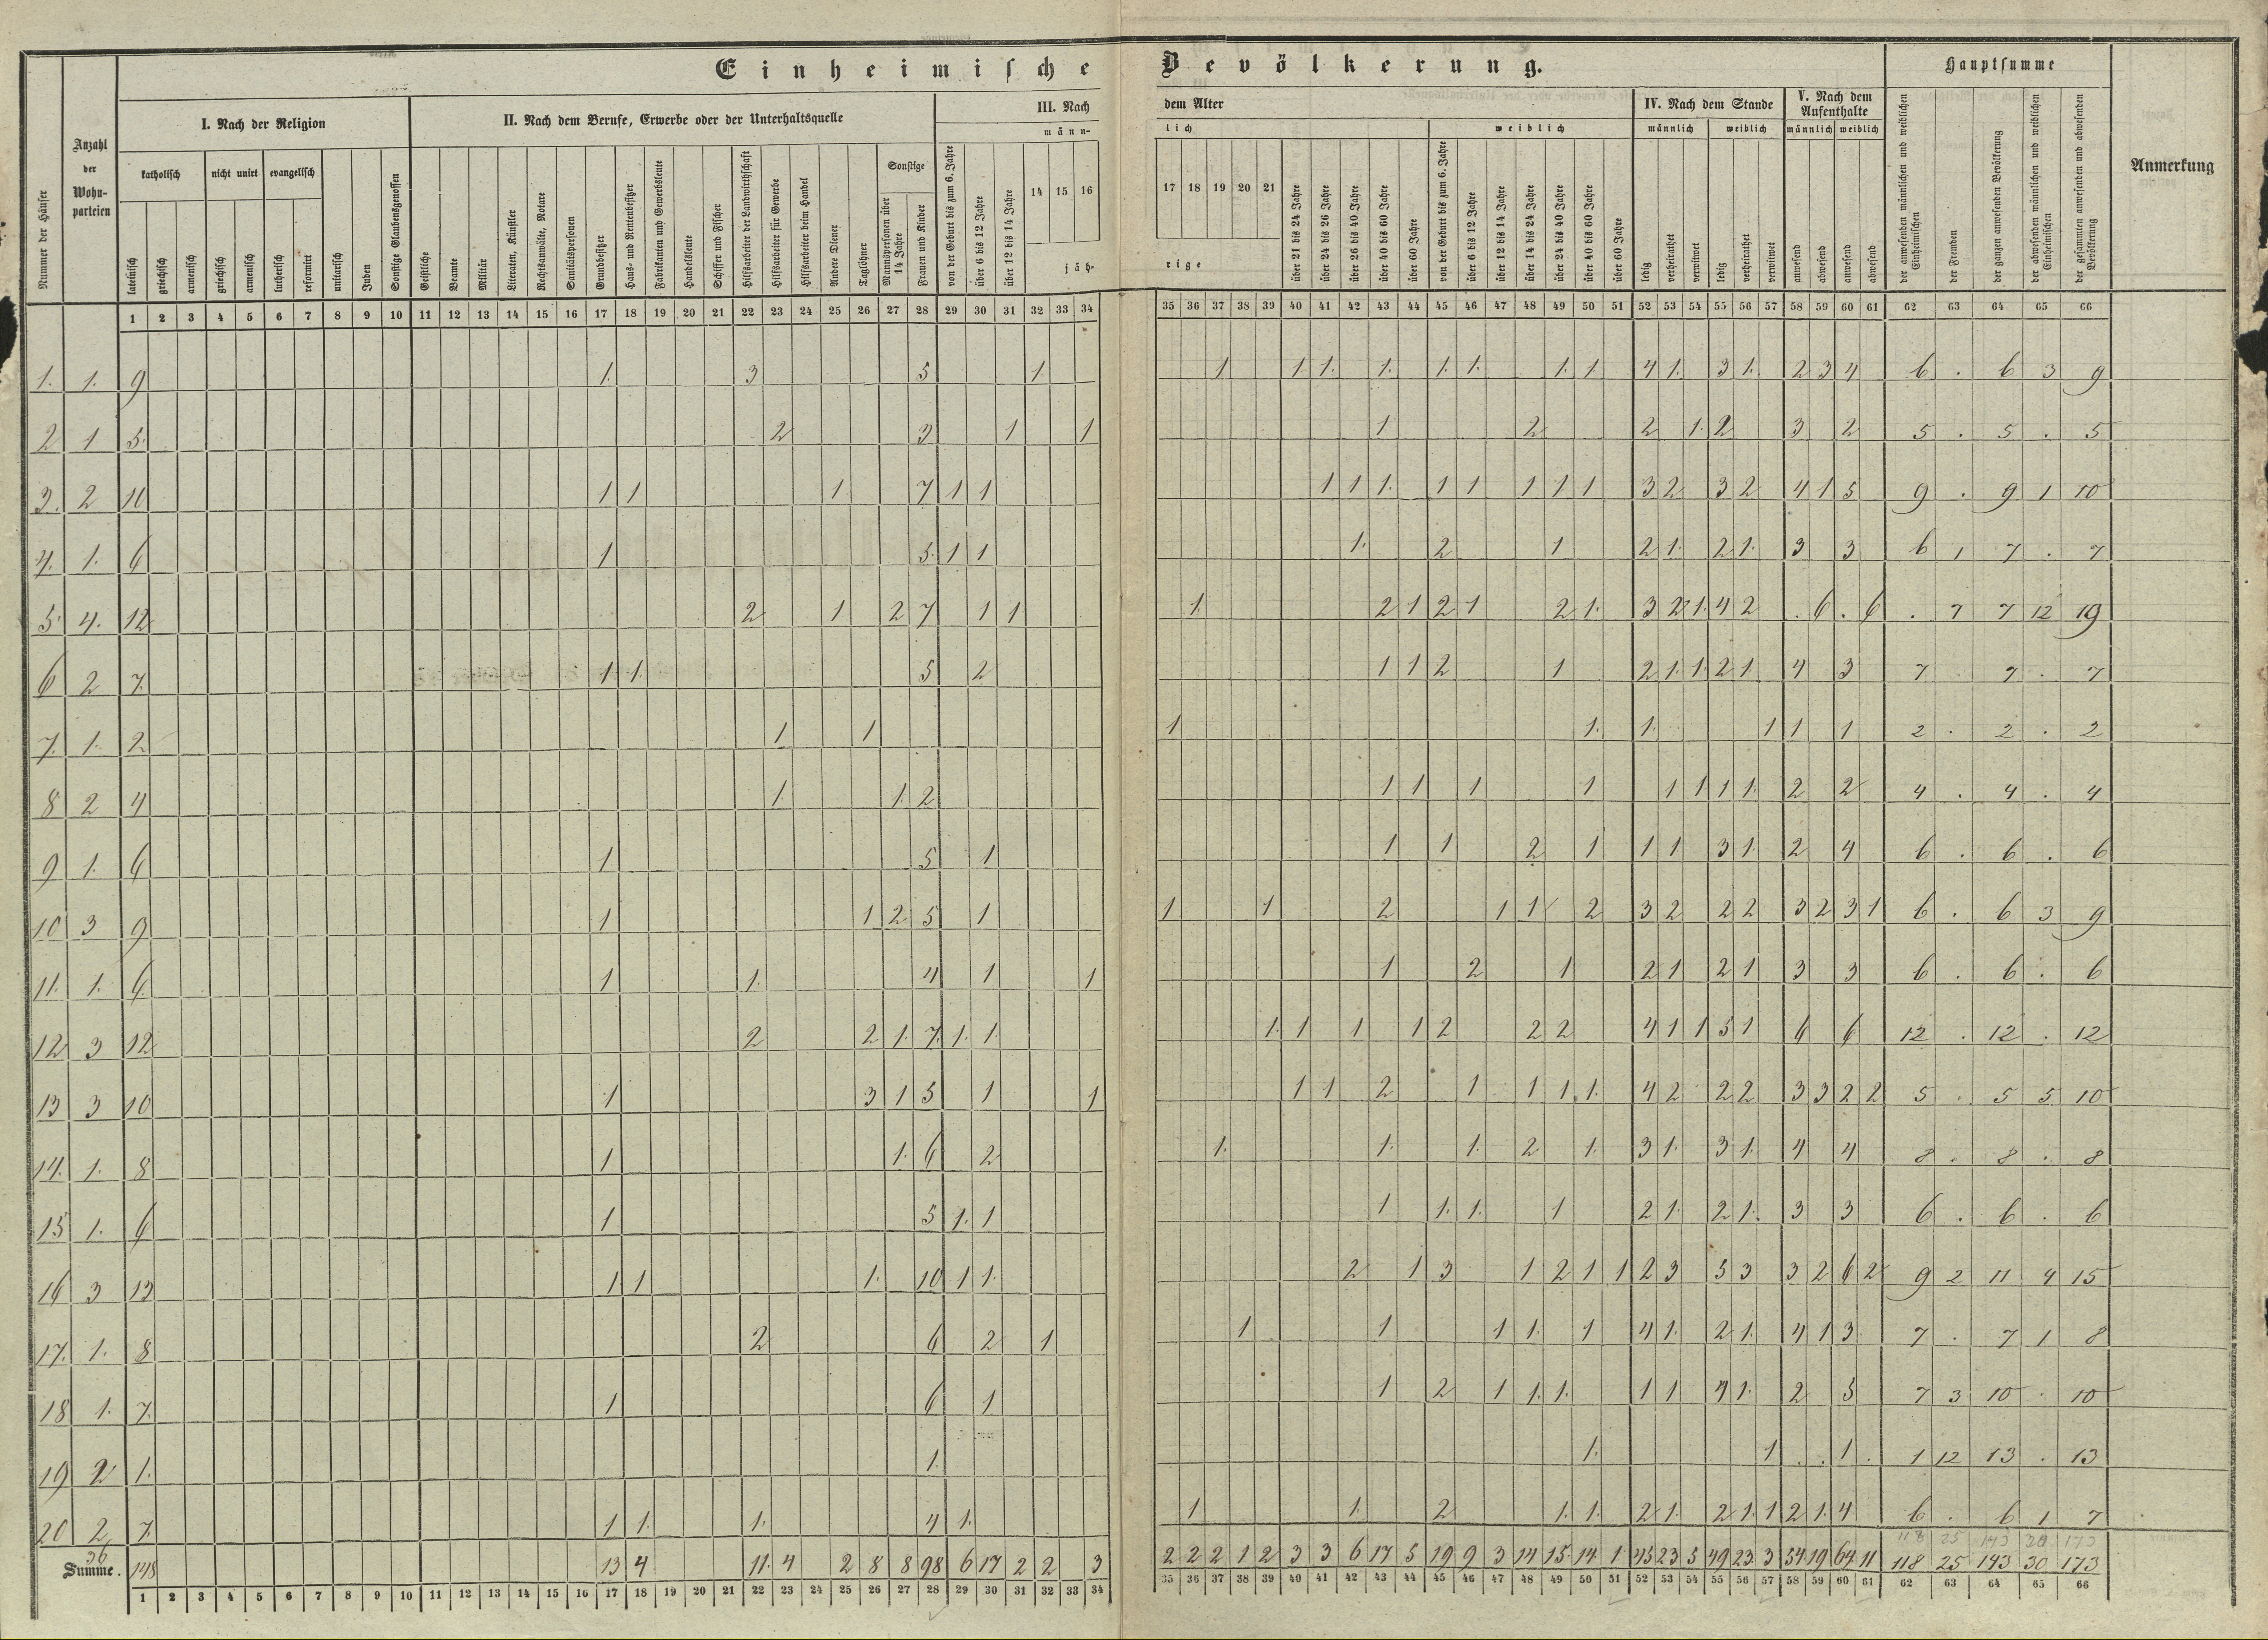 Einheimische Bevölkerung.
Hauptsumme
Nummer der Häuser
Anzahl der Wohnparteien
I. Nach der Religion
II. Nach dem Berufe, Erwerbe oder der Unterhaltsquelle
III. Nach dem Alter
IV. Nach dem Stande
V. Nach dem Aufenthalte
Anmerkung
katholisch
nicht unirt
evangelisch
Sonstige
männlich
weiblich
männlich
weiblich
männlich
weiblich
lateinisch
griechisch
armenisch
griechisch
armenisch
lutherisch
reformirt
unitarisch
Juden
Sonstige Glaubensgenossen
Geistliche
Beamte
Militär
Literaten, Künstler
Rechtsanwälte, Notare
Sanitätspersonen
Grundbesitzer
Haus- und Rentenbesitzer
Fabrikanten und Gewerbsleute
Handelsleute
Schiffer und Fischer
Hilfsarbeiter der Landwirthschaft
Hilfsarbeiter für Gewerbe
Hilfsarbeiter beim Handel
Andere Diener
Taglöhner
Mannspersonen über 14 Jahre
Frauen und Kinder
von der Geburt bis zum 6. Jahre
über 6 bis 12 Jahre
über 12 bis 14 Jahre
14 15 16 17 18 19 20 21
jährige
über 21 bis 24 Jahre
über 24 bis 26 Jahre
über 26 bis 40 Jahre
über 40 bis 60 Jahre
über 60 Jahre
von der Geburt bis zum 6. Jahre
über 6 bis 12 Jahre
über 12 bis 14 Jahre
über 14 bis 24 Jahre
über 24 bis 40 Jahre
über 40 bis 60 Jahre
über 60 Jahre
ledig
verheirathet
verwitwet
ledig
verheirathet
verwitwet
anwesend
abwesend
anwesend
abwesend
der anwesenden männlichen und weiblichen Einheimischen
der Fremden
der ganzen anwesenden Bevölkerung
der abwesenden männlichen und weiblichen Einheimischen
der gesammten anwesenden und abwesenden Bevölkerung
1 2 3 4 5 6 7 8 9 10 11 12 13 14 15 16 17 18 19 20 21 22 23 24 25 26 27 28 29 30 31 32 33 34 35 36 37 38 39 40 41 42 43 44 45 46 47 48 49 50 51 52 53 54 55 56 57 58 59 60 61 62 63 64 65 66
1. 1. 9 1. 3 5 1 1 1 1. 1. 1. 1. 1. 1 4 1. 3 1. 2 3 4 6 . 6 3 9
2 1 5. 2 3 1 1 1 2 2 1. 2 3 2 5 . 5 . 5
3. 2 10 1 1 1 7 1 1 1 1 1. 1 1 1 1 1 3 2 3 2 4 1 5 9 . 9 1 10
4. 1. 6 1 5. 1 1 1. 2 1 2 1. 2 1. 3 3 6 1 7 . 7
5. 4. 12 2 1 2 7 1 1 1 2 1 2 1 2 1. 3 2 1. 4 2 . 6 . 6 . 7 7 12 19
6 2 7. 1 1. 5 2 1 1 2 1 2 1. 1. 2 1 4 3 7 . 7 . 7
7. 1. 2 1 1 1 1. 1. 1 1 1 2 . 2 . 2
8 2 4 1 1. 2 1 1 1 1 1 1 1 1. 2 2 4 . 4 . 4
9 1. 6 1 5 1 1 1 2 1 1 1 3 1. 2 4 6 . 6 . 6
10 3 9 1 1 2 5 1 1 1 2 1 1 2 3 2 2 2 3 2 3 1 6 . 6 3 9
11. 1. 6 1 1. 4 1 1 1 2 1 2 1 2 1 3 3 6 . 6 . 6
12 3 12 2 2 1. 7. 1. 1. 1. 1 1 1 2 2 2 4 1 1 5 1 6 6 12 . 12 . 12
13 3 10 1 3 1 5 1 1 1 1 2 1 1 1. 1. 4 2 2 2 3 3 2 2 5 . 5 5 10
14. 1. 8 1 1. 6 2 1. 1. 1. 2 1. 3 1. 3 1. 4 4 8 . 8 . 8
15 1. 6 1 5 1. 1 1 1. 1. 1 2 1. 2 1. 3 3 6 . 6 . 6
16 3 13 1 1 1. 10 1 1. 2 1 3 1 2 1 1 2 3 5 3 3 2 6 2 9 2 11 4 15
17. 1. 8 2 6 2 1 1 1 1 1. 1 4 1. 2 1. 4 1 3 7 . 7 1 8
18 1. 7. 1 6 1 1 2 1 1. 1. 1 1 4 1. 2 5 7 3 10 . 10
19 2 1. 1. 1. 1 . . 1 . 1 12 13 . 13
20 2 7. 1 1. 1. 4 1. 1 1. 2 1. 1. 2 1. 2 1. 1 2 1. 4 6 . 6 1 7
118 25 143 30 173
Summe. 36 148 13 4 11. 4 2 8 8 98 6 17 2 2 3 2 2 2 1 2 3 3 6 17 5 19 9 3 14 15. 14. 1 45 23 5 49 23. 3 34 19 64 11 118 25 143 30 173
1 2 3 4 5 6 7 8 9 10 11 12 13 14 15 16 17 18 19 20 21 22 23 24 25 26 27 28 29 30 31 32 33 34 35 36 37 38 39 40 41 42 43 44 45 46 47 48 49 50 51 52 53 54 55 56 57 58 59 60 61 62 63 64 65 66